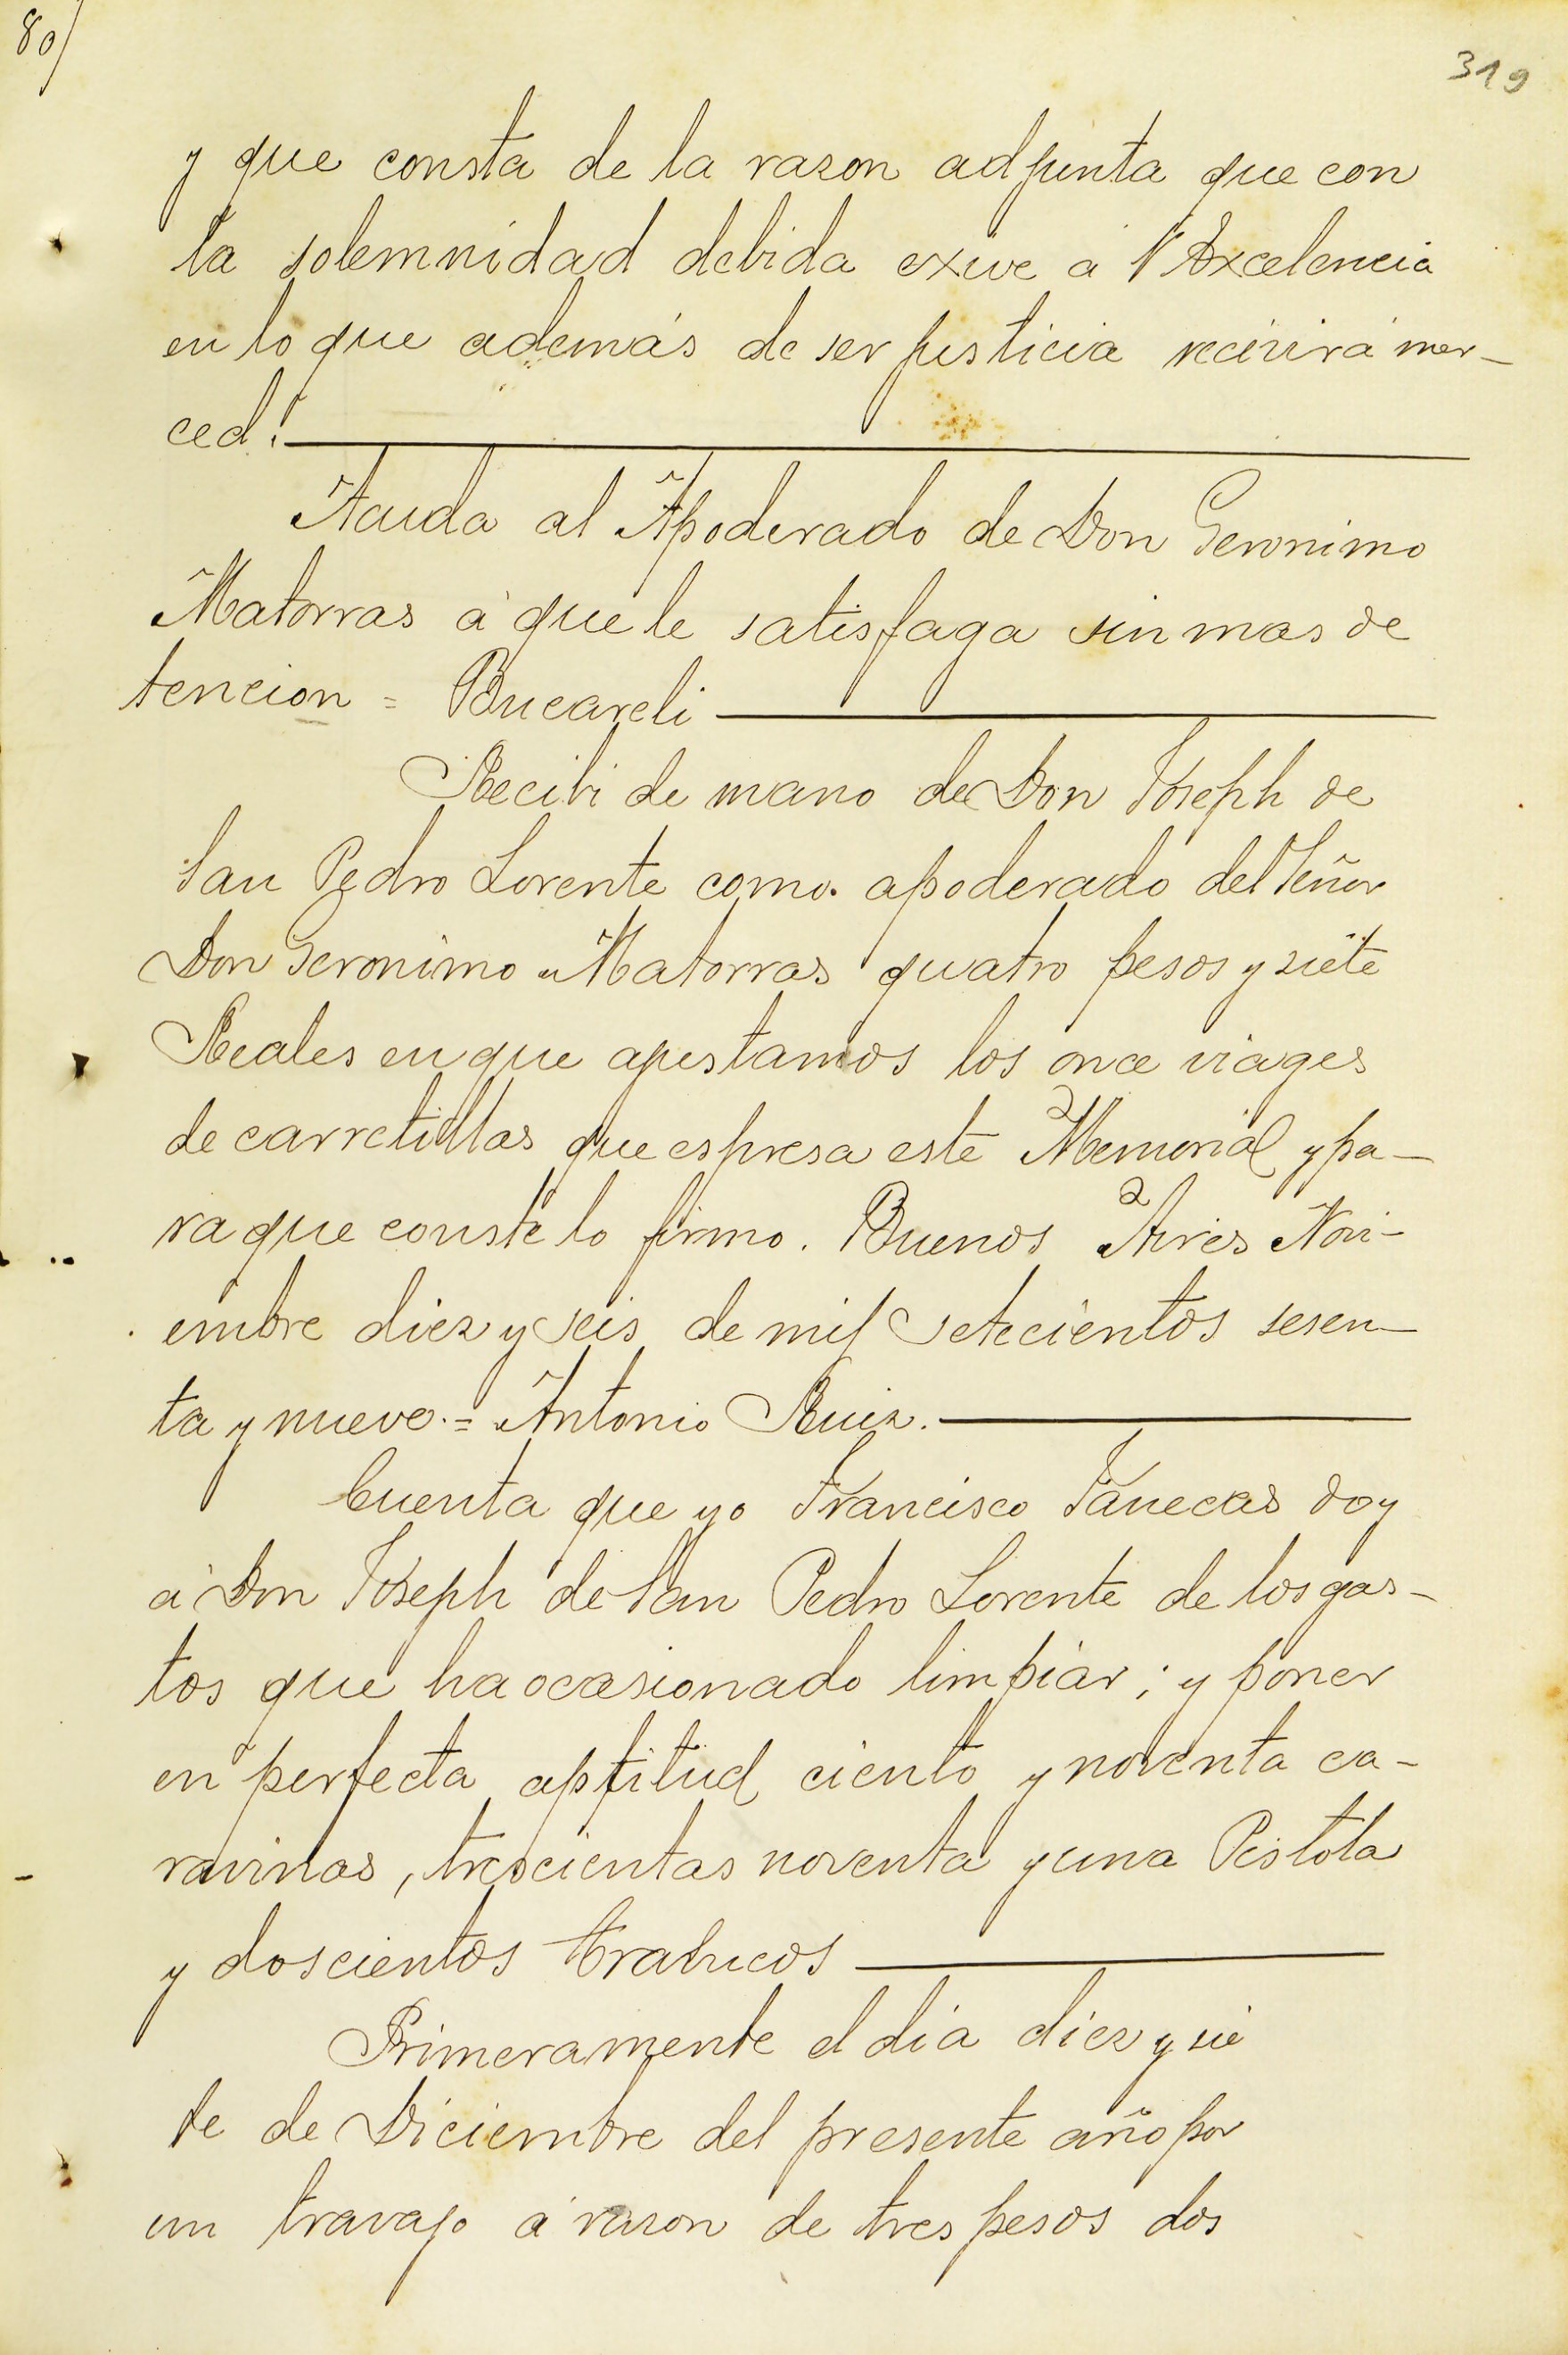 80/
319
y que consta de la razon adjunta que con
la solemnidad debida exive á V Excelencia
en lo que además de ser justicia recivirá mer-
ced.
Acuda al Apoderado de Don Geronimo
Matorras á que le satisfaga sin mas de
tencion = Bucareli
Recibi de mano de Don Joseph de
San Pedro Lorente como apoderado del Señor
Don Geronimo Matorras quatro pesos y siete
Reales en que ajustamos los once viages
de carretillas que espresa este Memorial y pa-
ra que conste lo firmo. Buenos Aires Novi-
embre diez y seis de mil setecientos sesen-
ta y nueve. = Antonio Ruiz.
Cuenta que yo Francisco Fanecas doy
á Don Joseph de San Pedro Lorente de los gas-
tos que ha ocasionado limpiar; y poner
en perfecta aptitud ciento y noventa ca-
ravinas, trescientas noventa y una Pistola
y doscientos trabucos
Primeramente el dia diez y sie
te de Diciembre del presente año por
un travajo á razon de tres pesos dos